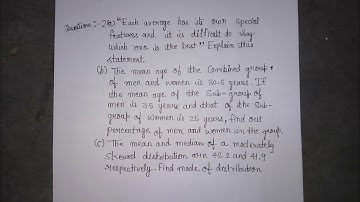 Question:- 2(a) "Each average has its own special
features and it is difficult to say
which one is the best" Explain this
statement.
(b) The mean age of the Combined group
of men and women is 30.5 years. If
the mean age of the Sub-group of
men is 35 years and that of the Sub-
group of women is 25 years, find out
percentage of men and women in the group.
(c) The mean and median of a moderately
skewed distribution are 42.2 and 41.9
respectively. Find mode of distribution